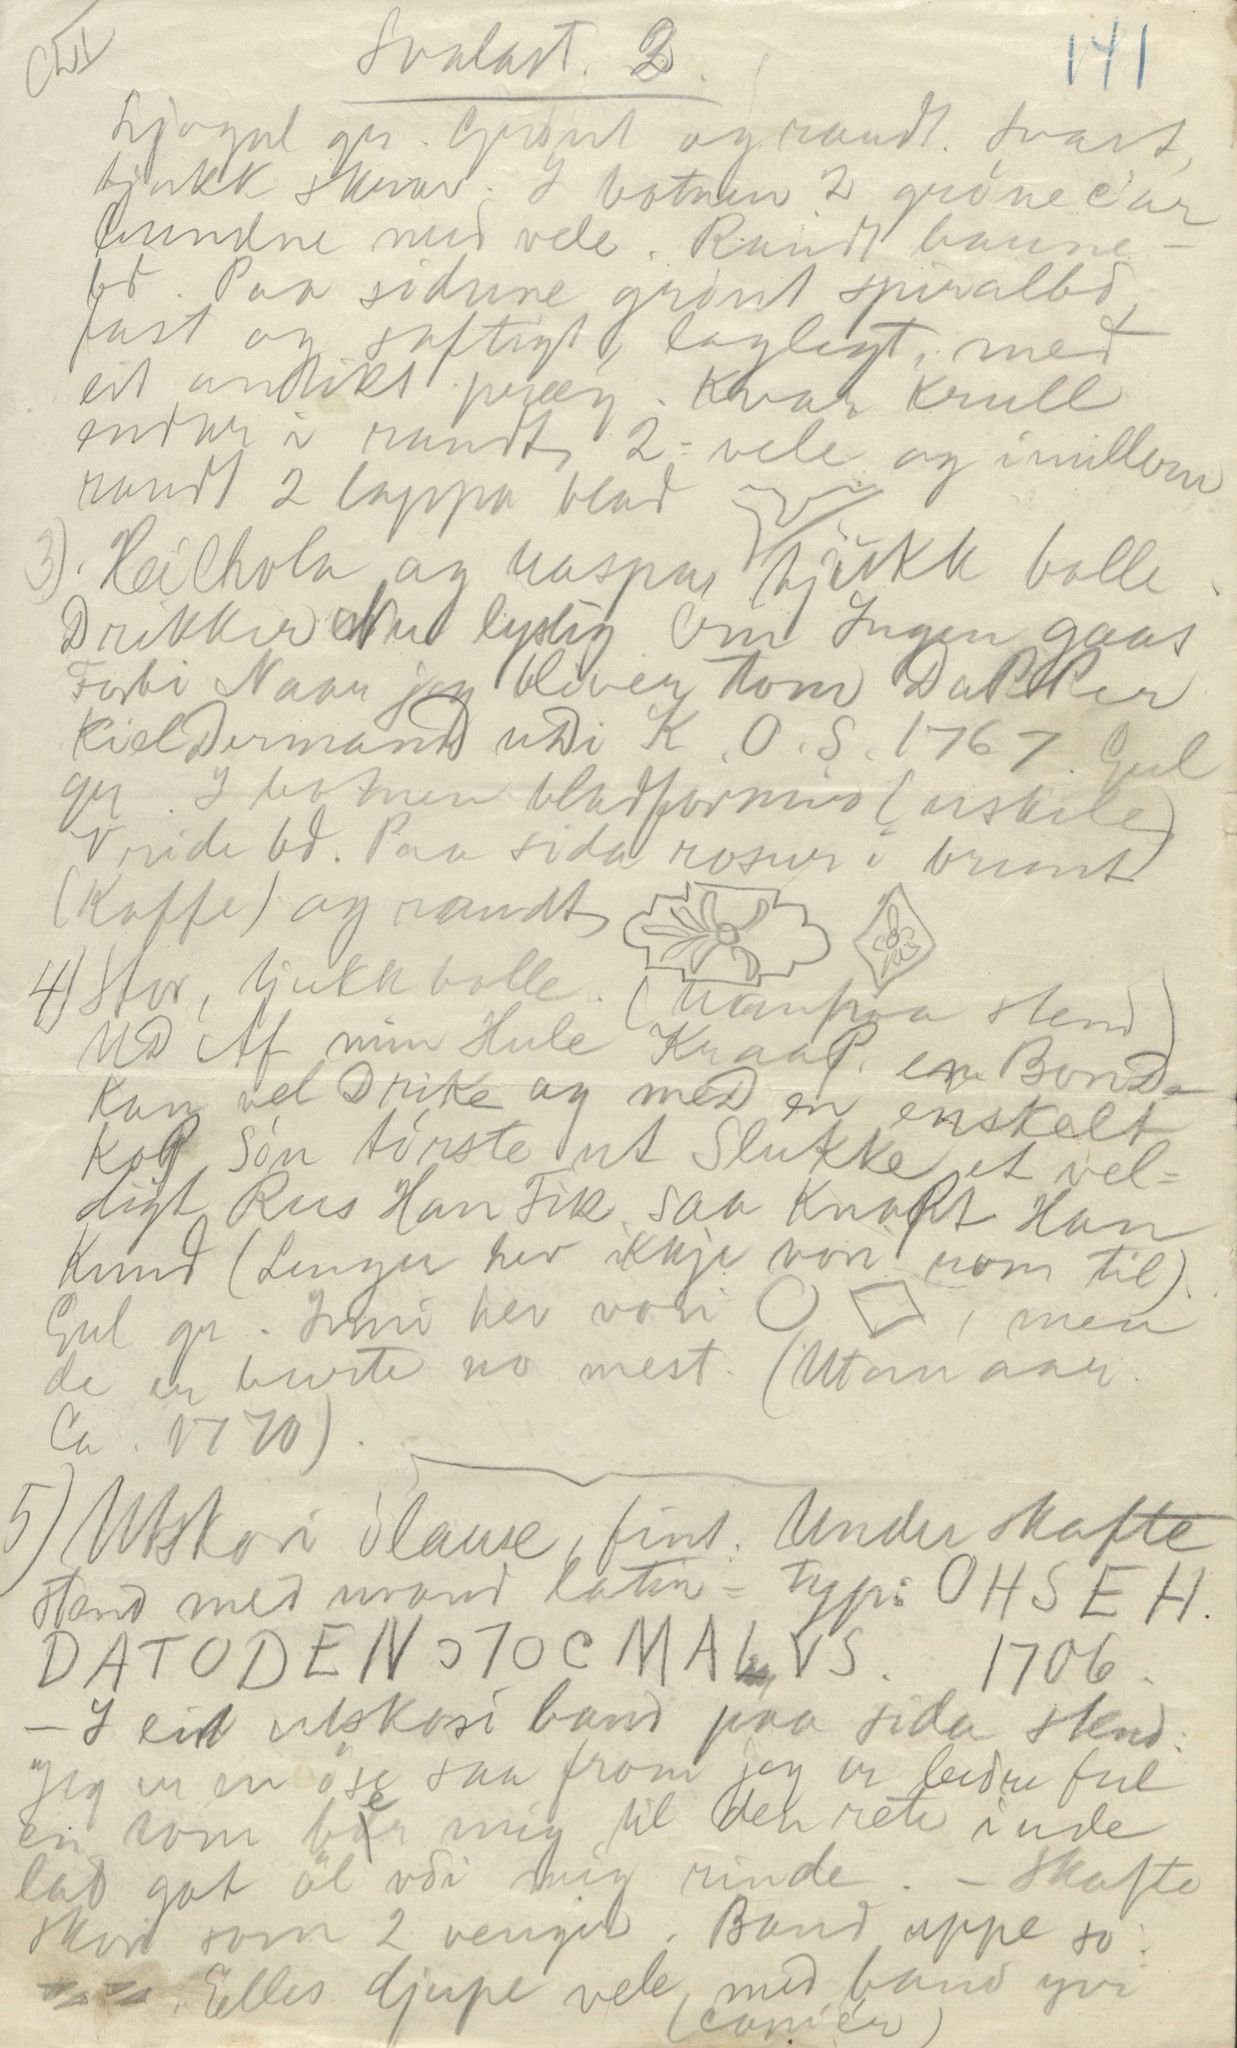 CLVI
Svalast. 2.
141
Ljosgul gr. Grönt og raudt. Svart,
tjukk skrav. I botnen 2 gröne c'ar
bundne med vele. Raudt baune-
bd. Paa sidune grönt spiralbd,
fast og saftigt, laglegt, med
eit antikt præg. Kvar krull
endar i raudt, 2 = vele og imillom
raudt 2 lappa blad
3). Heilhola og uaspar, tjukk bolle.
Drikker Nu lystig Om Ingen gaas
Forbi Naar jeg bliver tom DaPPer
KielDermanD uDi K. O. S. 1767. Gul
gr. I botnen bladformed (uskile)
Vride bd. Paa sida rosur i brunt
(Kaffe) og raudt,
4) Stor, tjukk bolle. (Utanpaa stend)
UD Af min Hule KraaP. en BonDe
Kan vel Drike og meD en enskelt
KoP Sön törste ut Slukke et vel-
digt Rus Han Fik saa KnaPt Han
Kund (Lenger hev ikkje vori rom til).
Gul gr. Inni hev vori , men
de er burte no mest. (Utan aar.
Ca. 1770).
5) Utskori ölause, fint. Under skafte
stend med uvand latin = typ: OHSEH.
DATODENSTOCMALVS. 1706.
- I eid utskori band paa sida stend:
Jeg er en öse saa from jeg er bedre ful
en tom ber mig til den rete inde
lad got öl vdi mig rinde. - Skafte
skori som 2 vengir. Band uppe so:
Elles djupe vele med band yvi
(caniér)